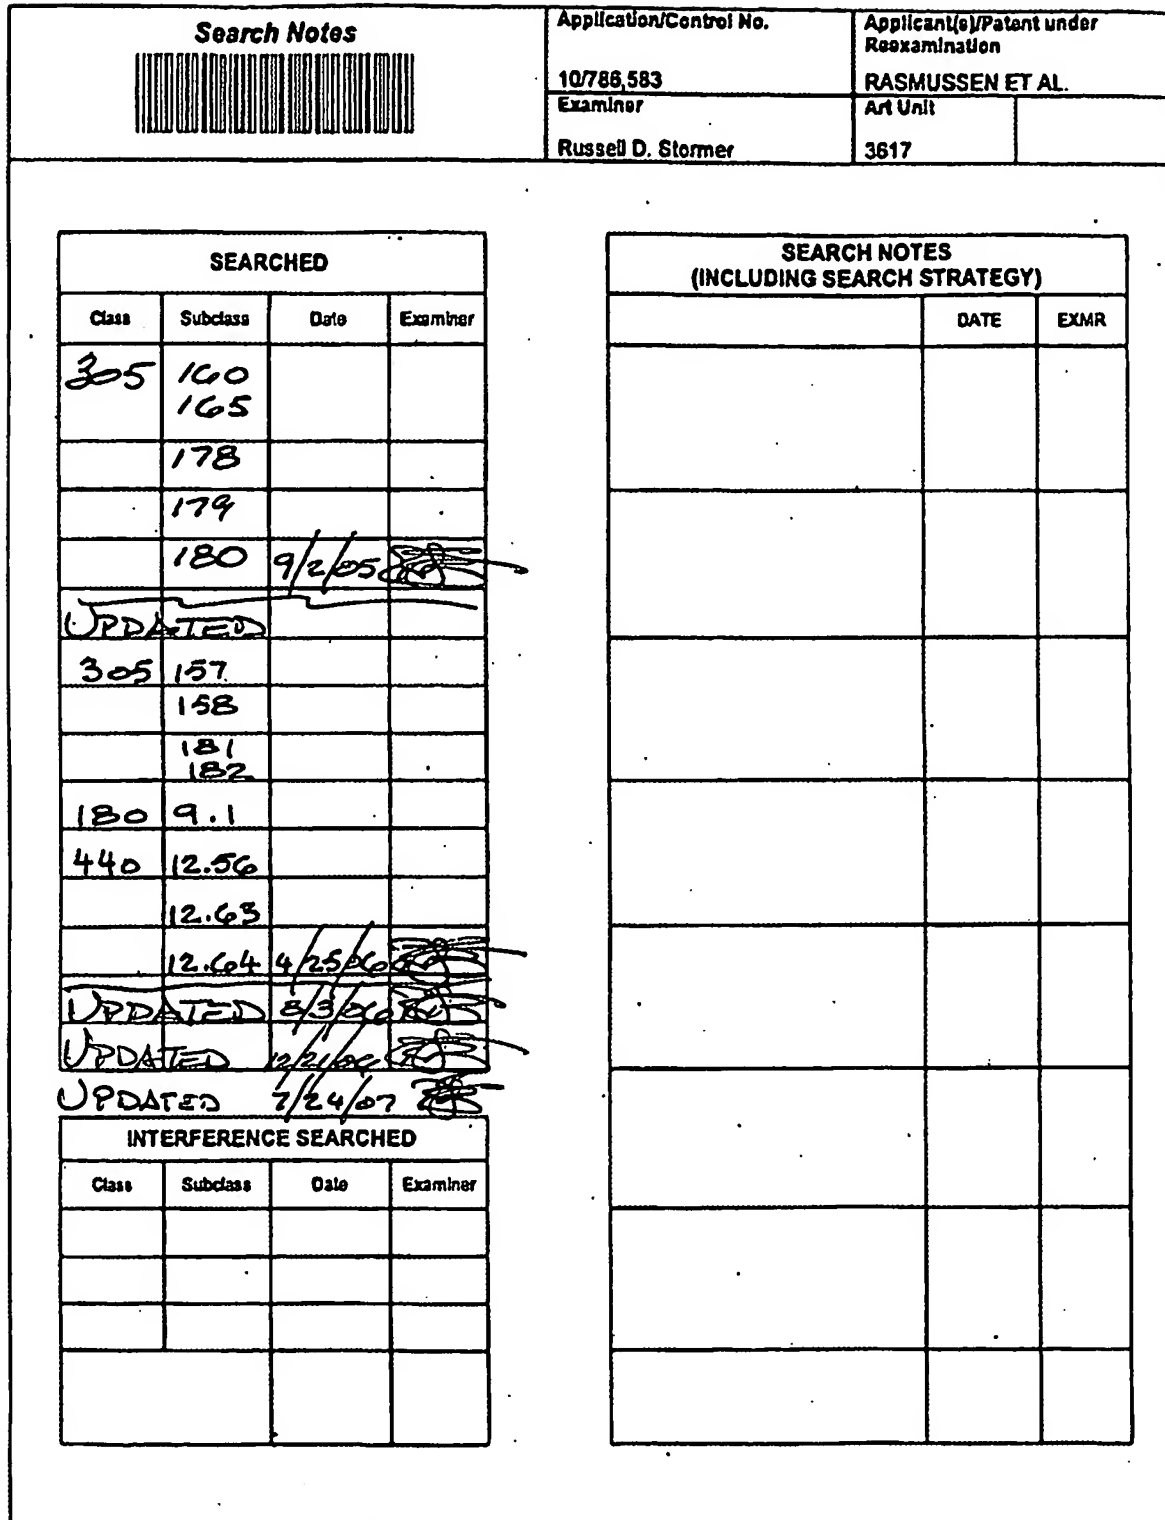 Search Notes
Application/Control No.
10/786,583
Applicant(s)/Patent under
Reexamination
RASMUSSEN ET AL.
Examiner
Russell D. Stormer
Art Unit
3617
SEARCHED
Class Subclass Date Examiner
305 160
165
178
179
180 9/2/05
UPDATED
305 157
158
181
182
180 9.1
440 12.56
12.63
12.64 4/25/06
UPDATED 8/3/06
UPDATED 12/21/06
UPDATED 7/24/07
INTERFERENCE SEARCHED
Class Subclass Date Examiner
SEARCH NOTES
(INCLUDING SEARCH STRATEGY)
DATE EXMR